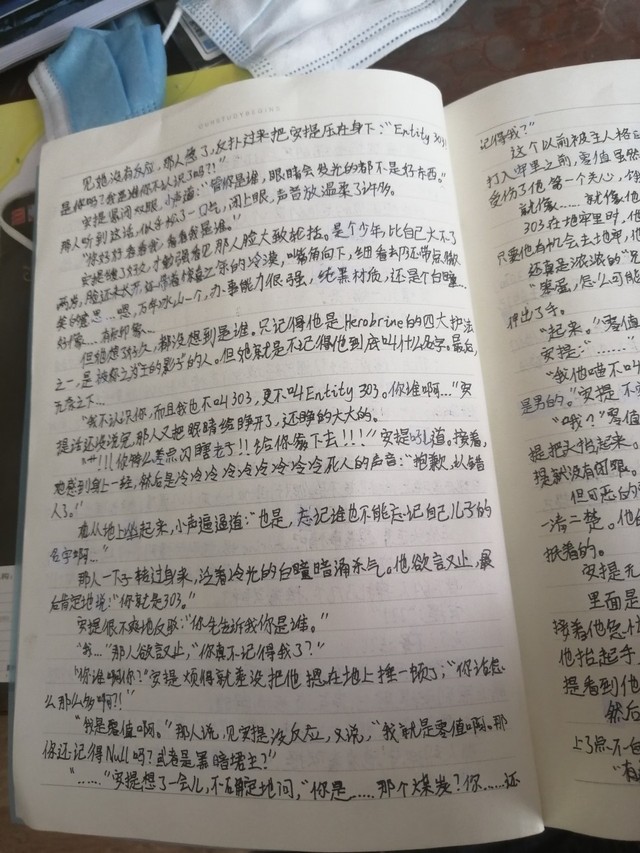 OURSTUDYBEGINS
见他没有反应，那人急了，反扑过来把安提压在身下："Entity 303
是你吗？我是谁你不认识了吗？！"
安提紧闭双眼，小声道："管你是谁，眼睛会发光的都不是好东西。"
那人听到这话，似乎松了一口气，闭上眼，声音放温柔了许多。
"你好好看看我，看看我是谁。"
安提缓了好久，才勉强看见那人脸大致轮括。是个少年，比自己大不了
两岁，脸还未长开，
嘴角向下，细看去仍还带点
的意思……嗯，万年冰山一个，办事能力很强，纯黑材质，还是个白瞳…
好像……有点印象…
但他想了好久，都没想到是谁。只记得他是Herobrine的四大护法
之一，是被称之为王的影子的人。但他就是不记得他到底叫什么名字。最后，
无奈之下…
"我不认识你，而且我也不叫303，更不叫Entity 303。你谁啊…"安
提话还没说完，那人又把眼睛给睁开了，还睁的大大的。
"艹！！！你特么差点闪瞎老子！！给你爹下去！！！"安提吼道。接着，
他感到身上一轻，然后是冷冷冷冷冷冷冷冷冷死人的声音："抱歉，认错
人了。"
他从地上坐起来，小声逼逼道："也是，忘记谁也不能忘记自己儿子的
名字啊…"
那人一下子转过身来，泛着冷光的白瞳暗涌杀气。他欲言又止，最
后肯定地说："你就是303。"
安提很不爽地反驳："你先告诉我你是谁。"
"我…"那人欲言又止，"你真不记得我了？"
"你谁啊你？"安提烦得就差没把他摁在地上捶一顿了；"你话怎
么那么多啊？！"
"我是零值啊。"那人说，见安提没反应，又说，"我就是零值啊。那
你还记得Null吗？或者是黑暗君主？"
"……"安提想了一会儿，不确定地问，"你是……那个煤炭？你……还
记得我？"
这个以前被主人格
打入牢里之前，零值虽然
受伤了他第一个关心，
就像……就像他
303在地牢里时，他
只要他有机会去地牢，他
还真是浓浓的"兄
"零蛋，怎么可能
押出了手。
"起来。"零值
安提："……"
"我他喵不叫
是男的。"安提不
"哦？"零值
提把头抬起来。
提就没有闭眼。
但可恶的
一清二楚。他
抚着的。
安提无
里面是
接着他急
他抬起手
提看到他
然后
上了点不自
"有